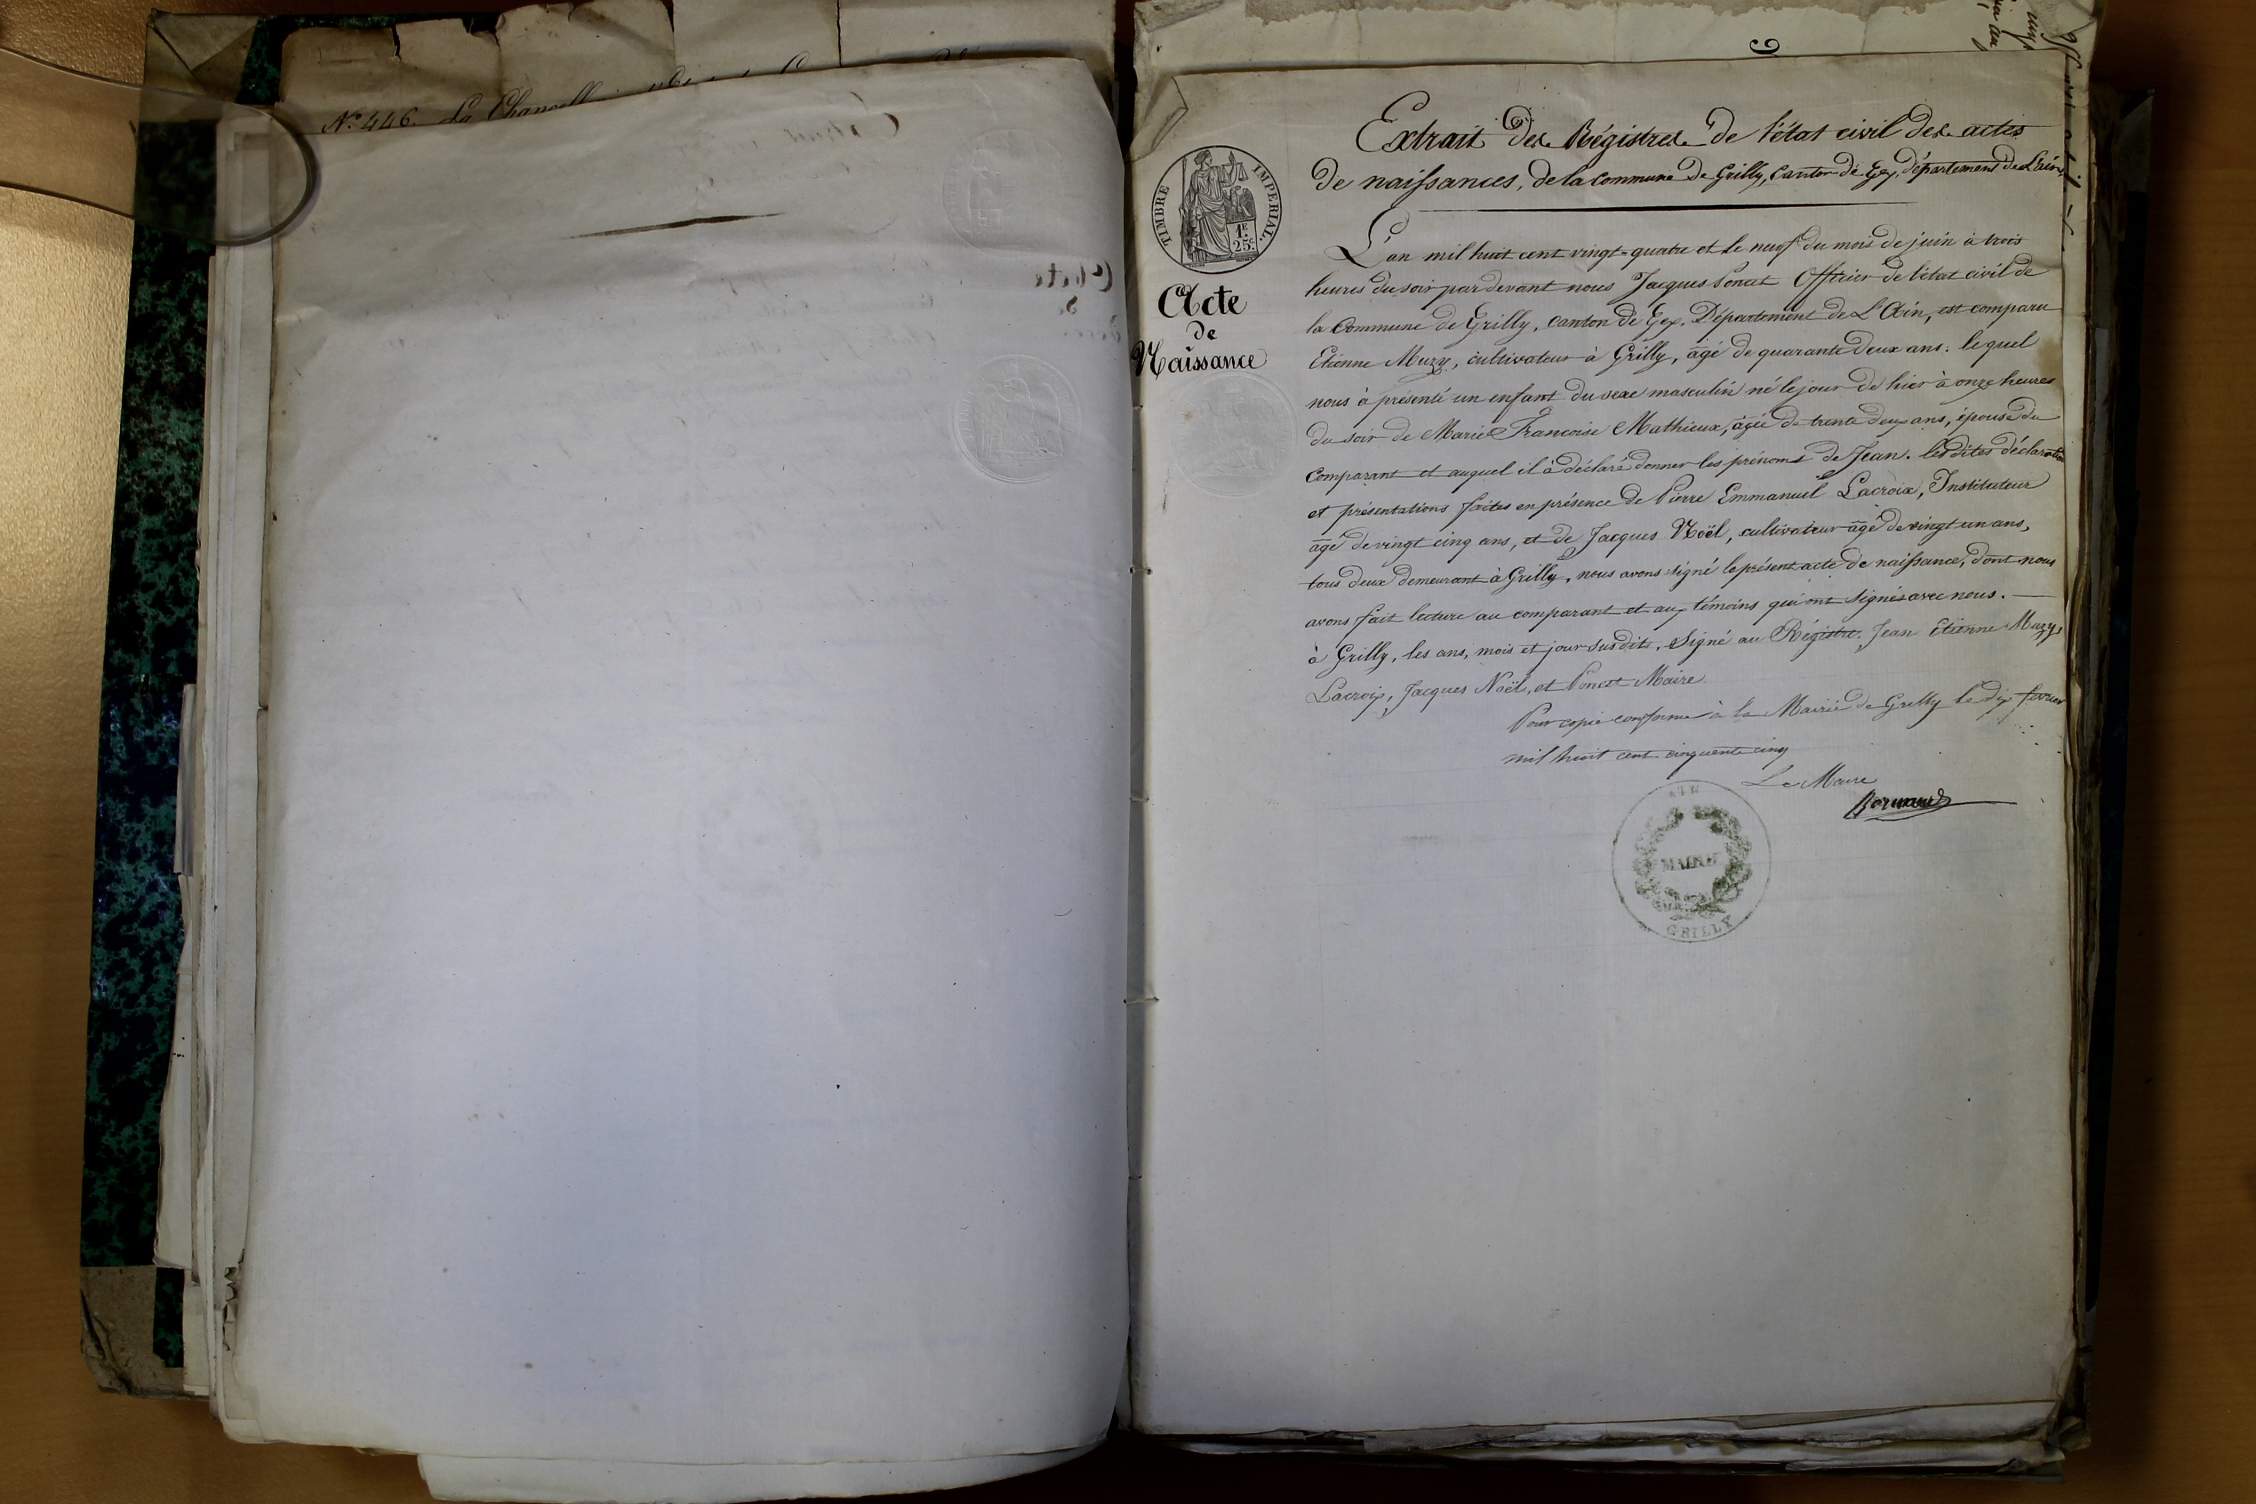 N.º 446. La Chancell
Extrait des Régistres de l'état civil des actes
de naissances, de la Commune de Grilly, Canton de Gex, département de L'ain.
TIMBRE IMPERIAL.
1F. 25c.
Acte
de
Naissance
L'an mil huit cent vingt-quatre et le neuf du mois de juin à trois
heures du soir pardevant nous Jacques Poncet Officier de l'état civil de
la Commune de Grilly, canton de Gex, Département de L'Ain, est comparu
Etienne Muzy, cultivateur à Grilly, âgé de quarante deux ans. lequel
nous à présenté un enfant du sexe masculin né le jour de hier à onze heures
du soir de Marie Françoise Mathieux, âgée de trente deux ans, épouse du
comparant et auquel il à déclaré donner les prénoms de Jean. les dites déclaration
et présentations faites en présence de Pierre Emmanuel Lacroix, Instituteur
âgé de vingt cinq ans, et de Jacques Noël, cultivateur âgé de vingt un ans,
tous deux demeurant à Grilly, nous avons signé le présent acte de naissance, dont nous
avons fait lecture au comparant et aux témoins qui ont signés avec nous.
à Grilly, les ans, mois et jour susdits. Signé au Régistre. Jean Etienne Muzy,
Lacroix, Jacques Noël, et Poncet Maire
Pour copie conforme à la Mairie de Grilly le dix fevrier
mil huit cent cinquante cinq
Le Maire
AIN
MAIRIE
GRILLY